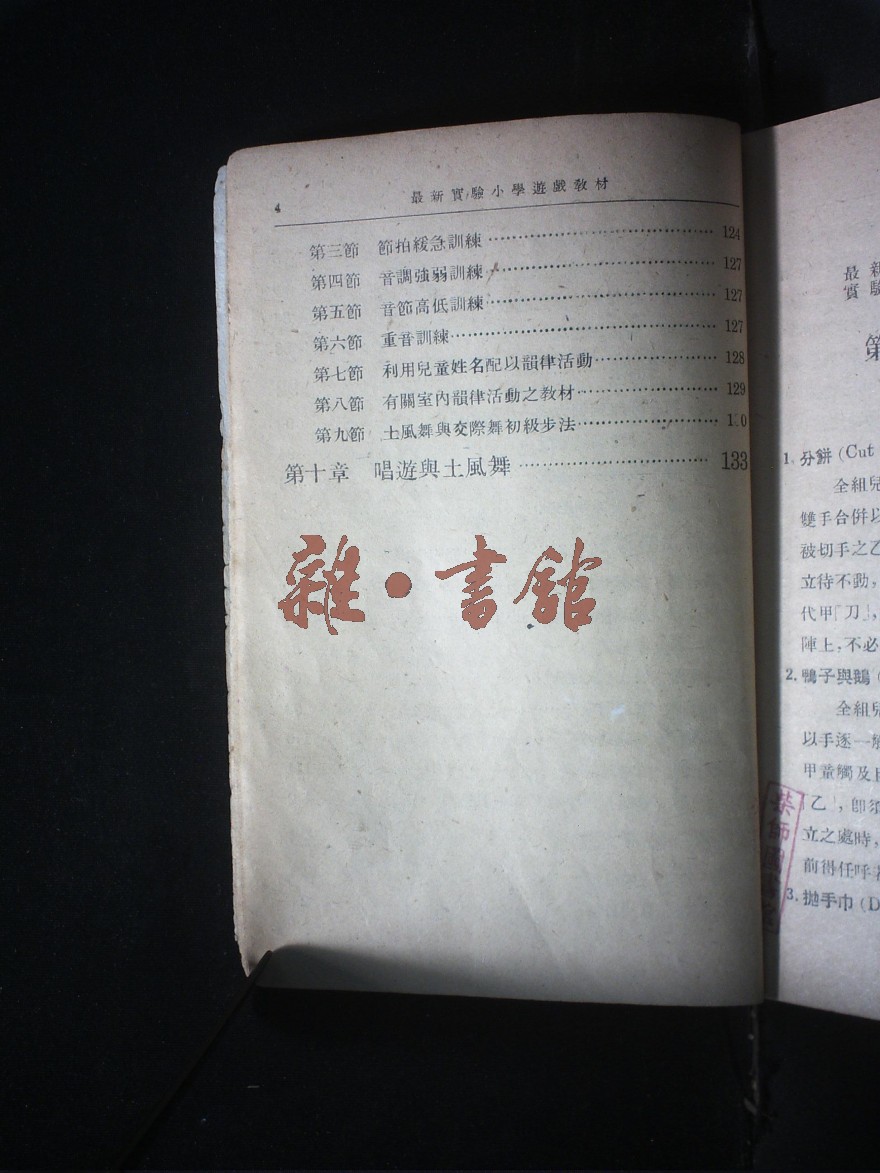 4
最新實驗小學遊戲教材
第三節 節拍緩急訓練 124
第四節 音調強弱訓練 127
第五節 音節高低訓練 127
第六節 重音訓練 127
第七節 利用兒童姓名配以韻律活動 128
第八節 有關室內韻律活動之教材 129
第九節 土風舞與交際舞初級步法
第十章 唱遊與土風舞 133
雜·書館
最新
實驗
第
1. 分餅 (Cut
全組兒
雙手合併以
被切手之乙
立待不動，
代甲「刀」，
陣上，不必
2. 鴨子與鵝 (
全組兒
以手逐一觸
甲童觸及目
「乙」，卽須
立之處時，
前得任呼
3. 拋手巾 (D